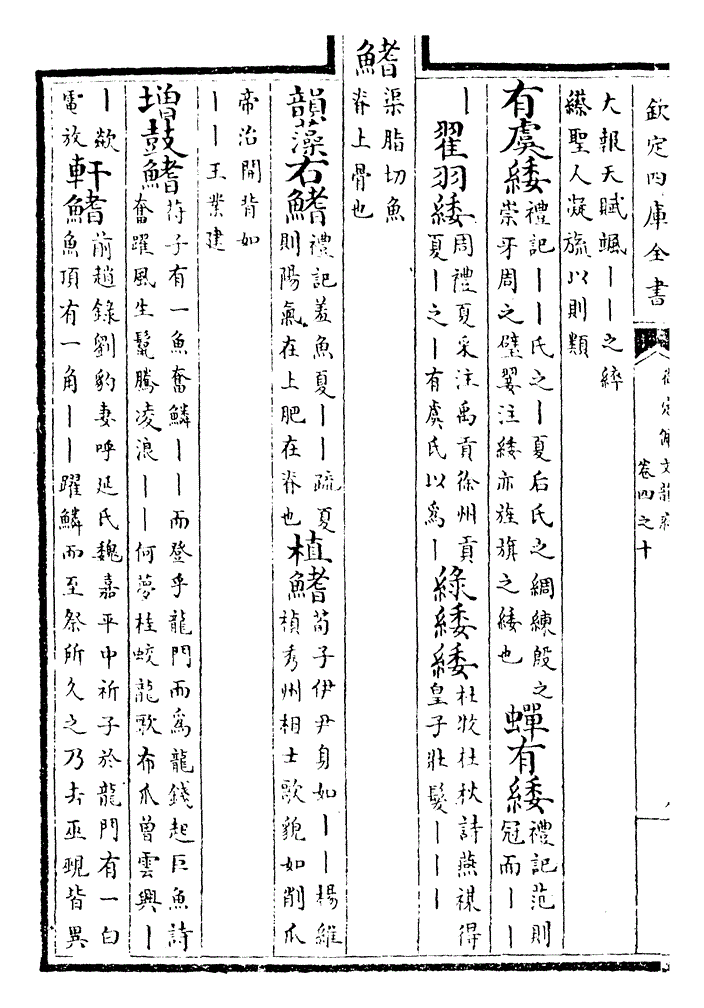 欽定四庫全書
御定佩文韻府
卷四之十
大報天賦颯丨丨之繂
繅聖人凝旒以則類
有虞緌 禮記丨丨氏之丨夏后氏之綢練殷之
崇牙周之璧翣注緌亦旌旗之緌也
蟬有緌 禮記范則
冠而丨丨
丨
翟羽緌 周禮夏采注禹貢徐州貢
夏丨之丨有虞氏以爲丨
綠緌緌 杜牧杜秋詩燕禖得
皇子壯髮丨丨丨
鰭 渠脂切魚
脊上骨也
韻藻右鰭 禮記羞魚夏丨丨疏夏
則陽氣在上肥在脊也
植鰭 荀子伊尹身如丨丨楊維
楨秀州相士歌貌如削瓜
帝治開背如
丨丨王業建
增鼓鰭 苻子有一魚奮鱗丨丨而登乎龍門而爲龍錢起巨魚詩
奮躍風生鬣騰凌浪丨丨何夢桂蛟龍歌布爪曾雲興丨
丨歘
電放
軒鰭 前趙錄劉豹妻呼延氏魏嘉平中祈子於龍門有一白
魚頂有一角丨丨躍鱗而至祭所久之乃去巫覡皆異